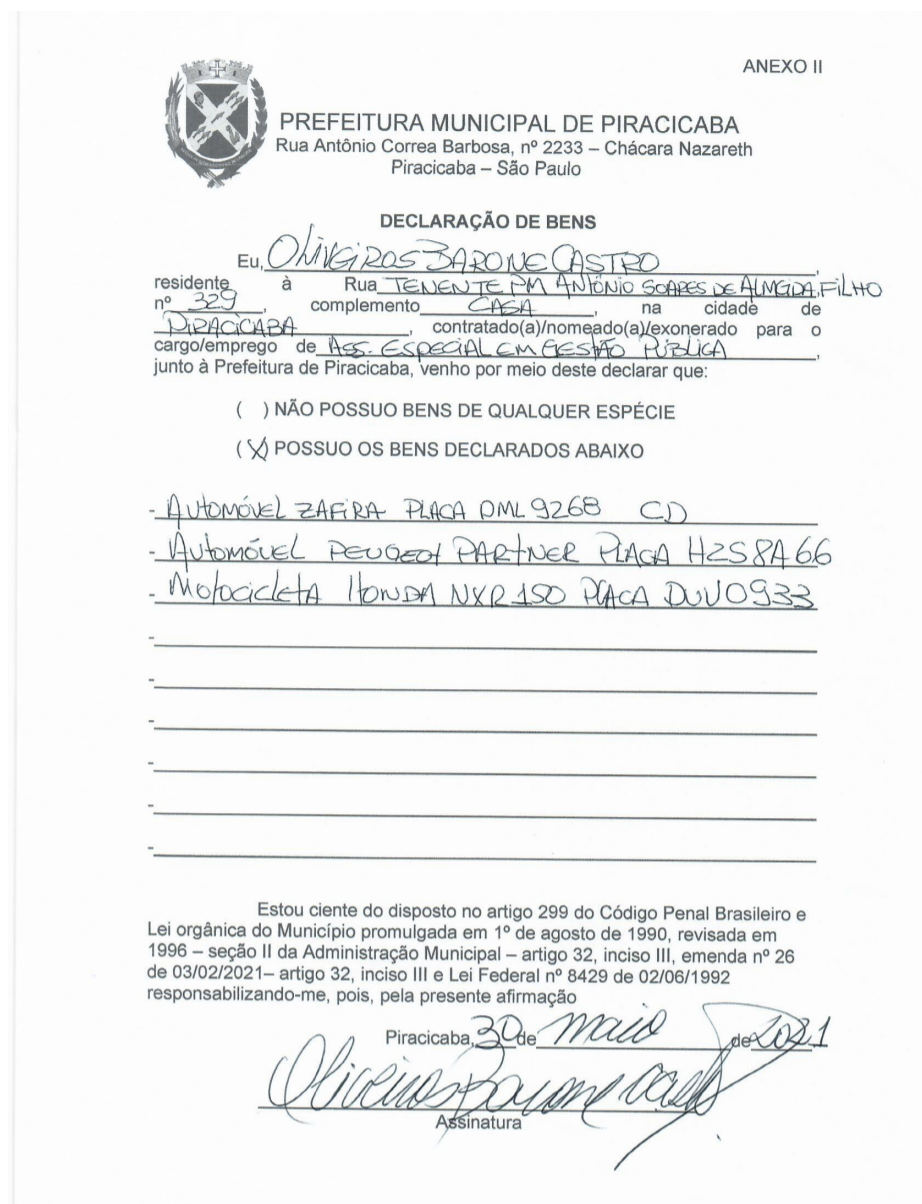 ANEXO II
PREFEITURA MUNICIPAL DE PIRACICABA
Rua Antônio Correa Barbosa, nº 2233 – Chácara Nazareth
Piracicaba – São Paulo
DECLARAÇÃO DE BENS
Eu, OLIVEIROS BARONE CASTRO,
residente à Rua TENENTE PM ANTÔNIO SOARES DE ALMEIDA FILHO
nº 329, complemento CASA, na cidade de
PIRACICABA, contratado(a)/nomeado(a)/exonerado para o
cargo/emprego de ASS. ESPECIAL EM GESTÃO PÚBLICA,
junto à Prefeitura de Piracicaba, venho por meio deste declarar que:
( ) NÃO POSSUO BENS DE QUALQUER ESPÉCIE
(X) POSSUO OS BENS DECLARADOS ABAIXO
- AUTOMÓVEL ZAFIRA PLACA DML 9268 CD
- AUTOMÓVEL PEUGEOT PARTNER PLACA HZS8A66
- MOTOCICLETA HONDA NXR 150 PLACA DUV0933
-
-
-
-
-
-
Estou ciente do disposto no artigo 299 do Código Penal Brasileiro e
Lei orgânica do Município promulgada em 1º de agosto de 1990, revisada em
1996 – seção II da Administração Municipal – artigo 32, inciso III, emenda nº 26
de 03/02/2021– artigo 32, inciso III e Lei Federal nº 8429 de 02/06/1992
responsabilizando-me, pois, pela presente afirmação
Piracicaba, 30 de maio de 2021
Oliveiros Barone Castro
Assinatura